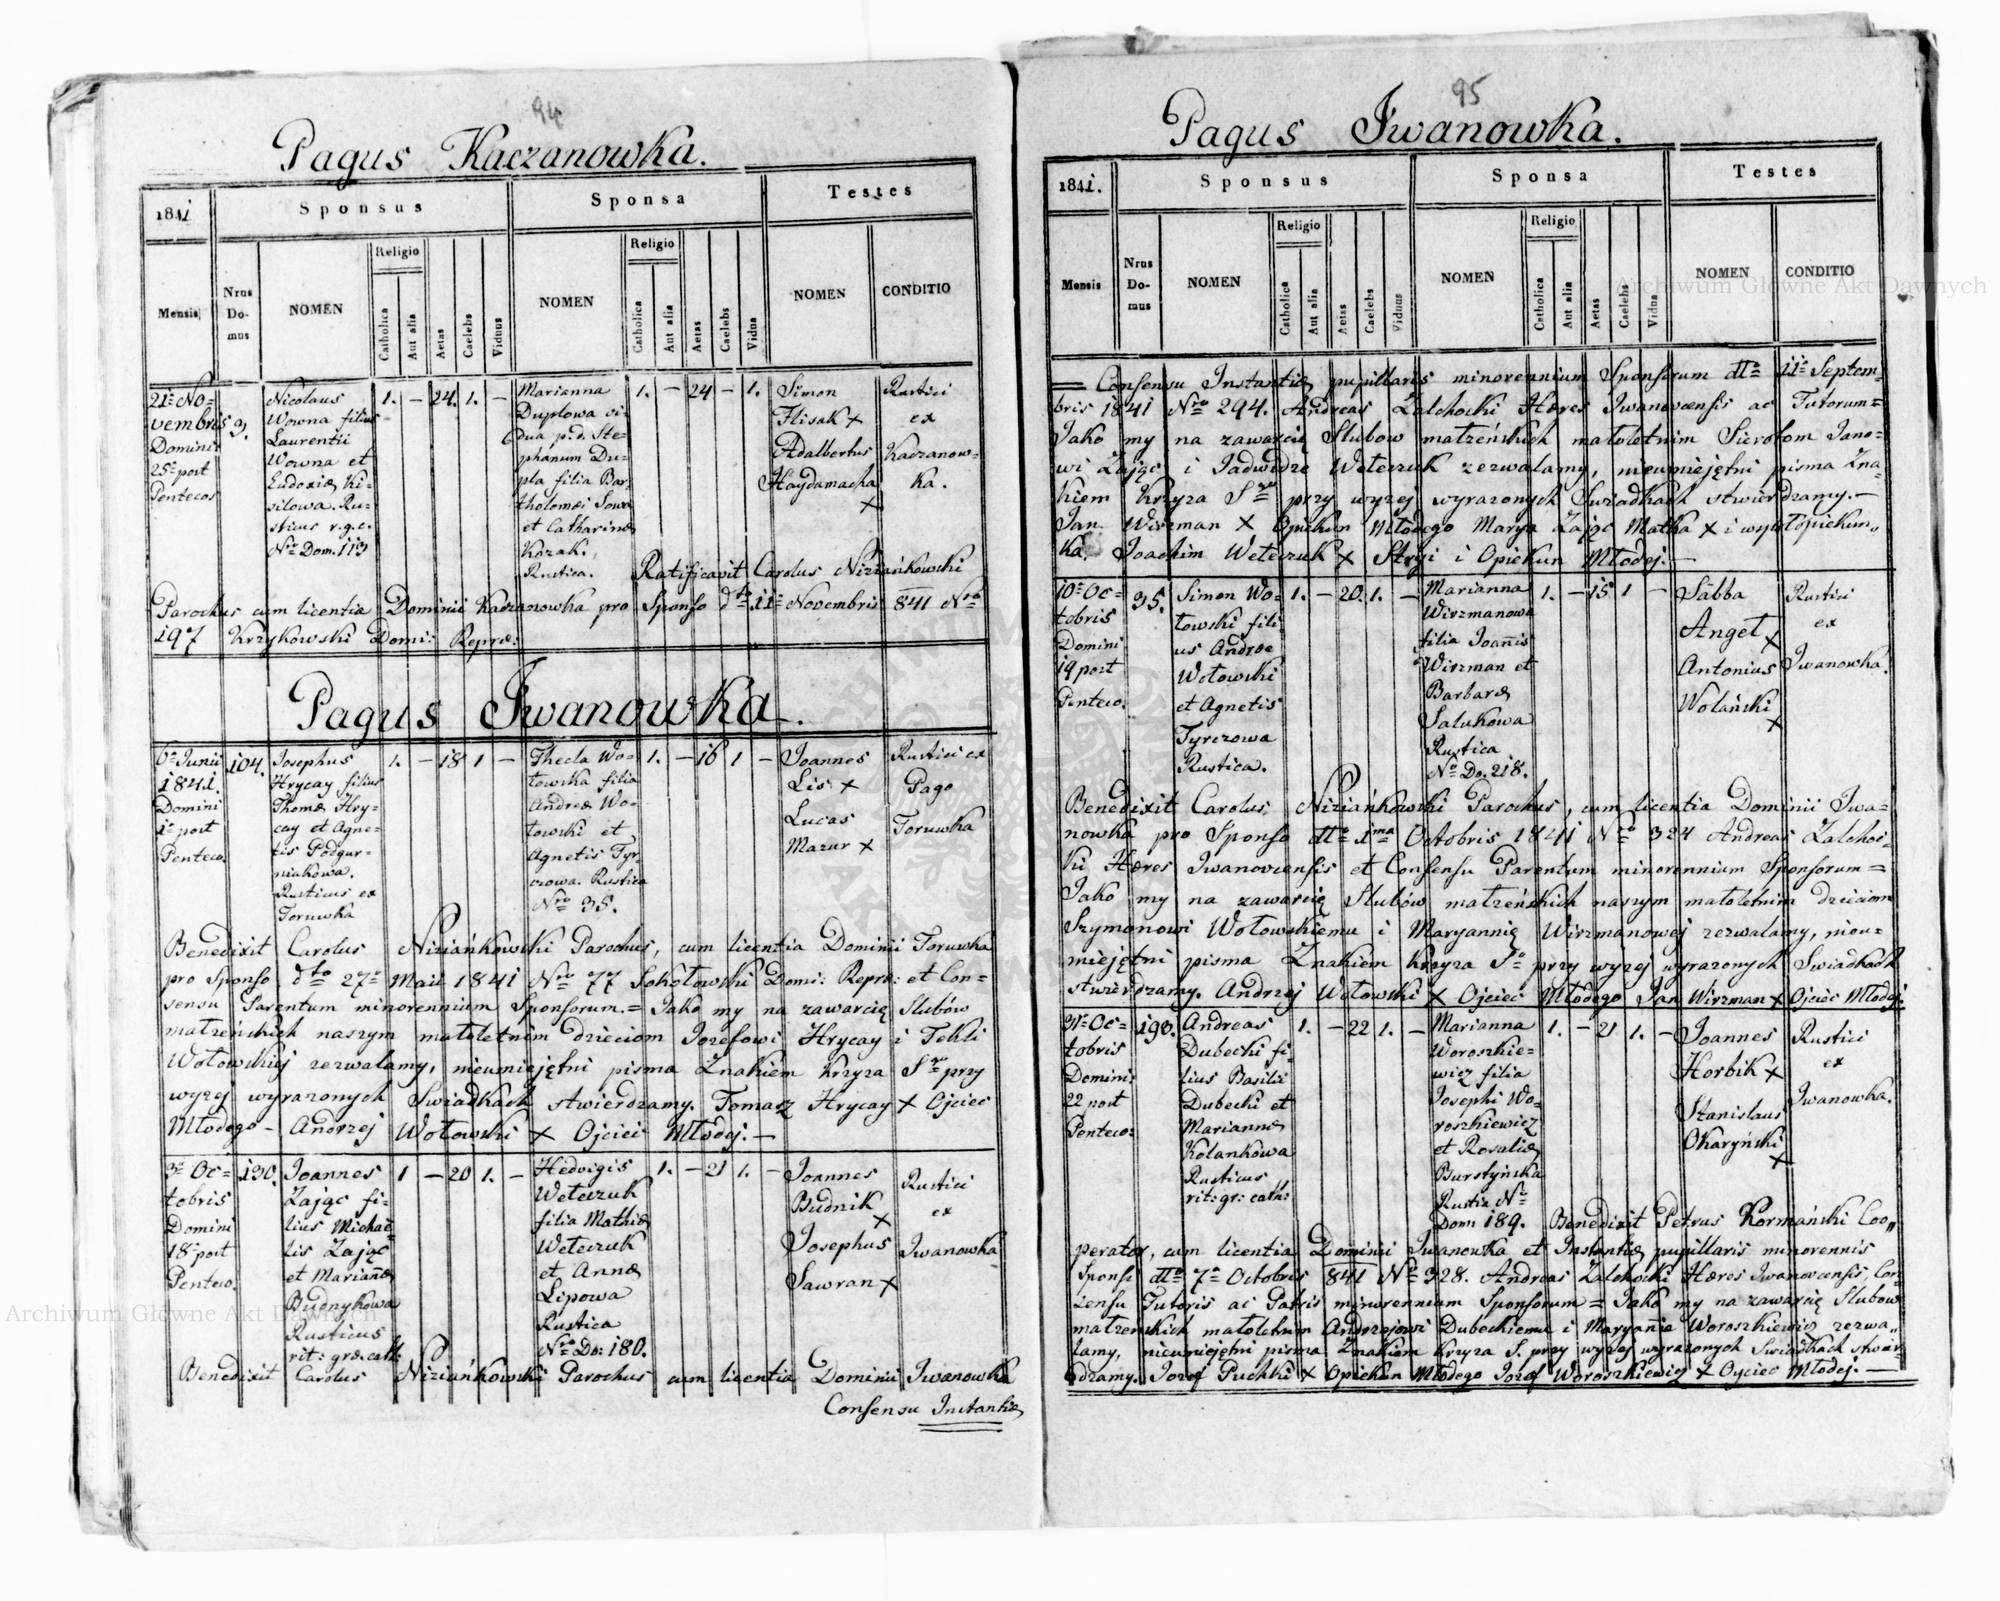 94
Pagus Kaczanowka.
1841
Sponsus
Sponsa
Testes
Mensis
Nrus Do- mus
NOMEN
Religio
Catholica
Aut alia
Aetas
Caelebs
Viduus
NOMEN
Religio
Catholica
Aut alia
Aetas
Caelebs
Vidua
NOMEN
CONDITIO
21a No-
vembris
Dominis
25a post
Pentecos
9.
Nicolaus
Wowna filius
Laurentii
Wowna et
Eudoxiæ Ki-
silowa. Ru-
sticus r.g.c.
Nro Dom. 113
1. – 24. 1. –
Marianna
Duplowa vi-
dua p.d. Ste-
phanum Du-
pla filia Bar-
tholomæi Sowa
et Catharinæ
Kozak.
Rustica.
1. – 24 – 1.
Simon
Flisak x
Adalbertus
Haydamacha
x
Rustici
ex
Kaczanow-
ka.
Ratificavit Carolus Niziańkowski
Parochus cum licentia Dominii Kaczanowka pro Sponso dto 11a Novembris 841 Nro
197 Krzykowski Domi: Repræ:
Pagus Iwanowka.
6a Junii
1841.
Domini
1a post
Penteco.
104.
Josephus
Hrycay filius
Thomæ Hry-
cay et Agne-
tis Podgur-
niakowa.
Rusticus ex
Toruwka
1. – 18 1 –
Thecla Wo-
towska filia
Andreæ Wo-
towski et
Agnetis Tyr-
czowa. Rustica
Nro 35.
1. – 16 1 –
Joannes
Lis x
Lucas
Mazur x
Rustici ex
Pago
Toruwka
Benedixit Carolus Niziańkowski Parochus, cum licentia Dominii Toruwka
pro Sponso dto 27a Maii 1841 Nro 77 Sokołowski Domi: Repræ: et Con=
sensu Parentum minorennium Sponsorum. = Jako my na zawarcię Slubów
małzeńskich naszym małoletnim dzieciom Jozefowi Hrycay i Tekli
Wotowskiej zezwalamy, nieumiejętni pisma Znakiem Krzyza Sgo przy
wyzej wyrazonych Swiadkach stwierdzamy. Tomasz Hrycay x Ojciec
Młodego – Andrzej Wotowski x Ojciec Młodej. –
3a Oc=
tobris
Domini
18a post
Penteco.
130.
Joannes
Zając fi-
lius Michae-
lis Zając
et Mariañæ
Budnykowa
Rusticus
rit: græ. cath:
1 – 20 1. –
Hedvigis
Weteczuk
filia Mathiæ
Weteczuk
et Annæ
Lipowa
Rustica
Nro Do: 180.
1. – 21 1. –
Joannes
Budnik
x
Josephus
Sawran x
Rustici
ex
Iwanowka
Benedixit Carolus Niziańkowski Parochus cum licentia Dominii Iwanowka
Consensu Instantiæ
95
Pagus Iwanowka.
1841.
Sponsus
Sponsa
Testes
Mensis
Nrus Do- mus
NOMEN
Religio
Catholica
Aut alia
Aetas
Caelebs
Viduus
NOMEN
Religio
Catholica
Aut alia
Aetas
Caelebs
Vidua
NOMEN
CONDITIO
= Consensu Instantiæ pupillaris minorennium Sponsorum dto 11a Septem-
bris 1841 Nro 294. Andreas Zalchocki Hæres Iwanovcensis ac Tutorum=
Jako my na zawarcię Slubow małzeńskich małoletnim Sierotom Jano-
wi Zając i Jadwidze Weteczuk zezwalamy, nieumiejętni pisma Zna-
kiem Krzyza Sgo przy wyzej wyrazonych Swiadkach stwierdzamy. –
Jan Wirzman x Opiekun Młodego Marya Zając Matka x i współopiekun-
ka. Joachim Weteczuk x Stryi i Opiekun Młodej. –
10a Oc=
tobris
Domini
19 post
Penteco.
35.
Simon Wo-
towski fili-
us Andreæ
Wotowski
et Agnetis
Tyrczowa
Rustica.
1. – 20. 1. –
Marianna
Wirzmanowa
filia Joañis
Wirzman et
Barbaræ
Salukowa
Rustica
Nro Do. 218.
1. – 15 1 –
Sabba
Angel x
Antonius
Wolański
x
Rustici
ex
Iwanowka.
Benedixit Carolus Niziańkowski Parochus, cum licentia Dominii Iwa=
nowka pro Sponso dto 1ma Octobris 1841 Nro 324 Andreas Zalchoc-
ki Hæres Iwanovcensis et Consensu Parentum minorennium Sponsorum=
Jako my na zawarcię Slubów małzeńskich naszym małoletnim dzieciom
Szymonowi Wotowskiemu i Maryannię Wirzmanowej zezwalamy, nieu-
miejętni pisma Znakiem Krzyza Sgo przy wyzej wyrazonych Swiadkach
stwierdzamy. Andrzej Wotowski x Ojciec Młodego Jan Wirzman x Ojciec Młodej.
31a Oc=
tobris
Domini:
22 post
Penteco:
190.
Andreas
Dubecki fi-
lius Basilii
Dubecki et
Mariannæ
Kolankowa
Rusticus
rit: gr: cath:
1. – 22 1. –
Marianna
Woroszkie-
wicz filia
Josephi Wo-
roszkiewicz
et Rosaliæ
Burstyńska
Rustica Nro
Dom: 189.
1. – 21 1. –
Joannes
Horbik x
Stanislaus
Okaryński
x
Rustici
ex
Iwanowka.
Benedixit Petrus Kormański Coo„
perator, cum licentia Dominii Iwanowka et Instantiæ pupillaris minorennis
Sponsi dto 7a Octobris 841 Nro 328. Andreas Zalchocki Hæres Iwanovcensis, Con-
sensu Tutoris ac Patris minorennium Sponsorum = Jako my na zawarcię Slubow
małzenskich małoletnim Andrzejowi Dubeckiemu i Maryañie Woroszkiewicz zezwa„
lamy, nieumiejętni pisma Znakiem Krzyza S. przy wyzej wyrazonych Swiadkach stwier-
dzamy. Jozef Puchki x Opiekun Młodego Jozef Woroszkiewicz x Oyciec Młodej. –
Archiwum Główne Akt Dawnych
Archiwum Główne Akt Dawnych